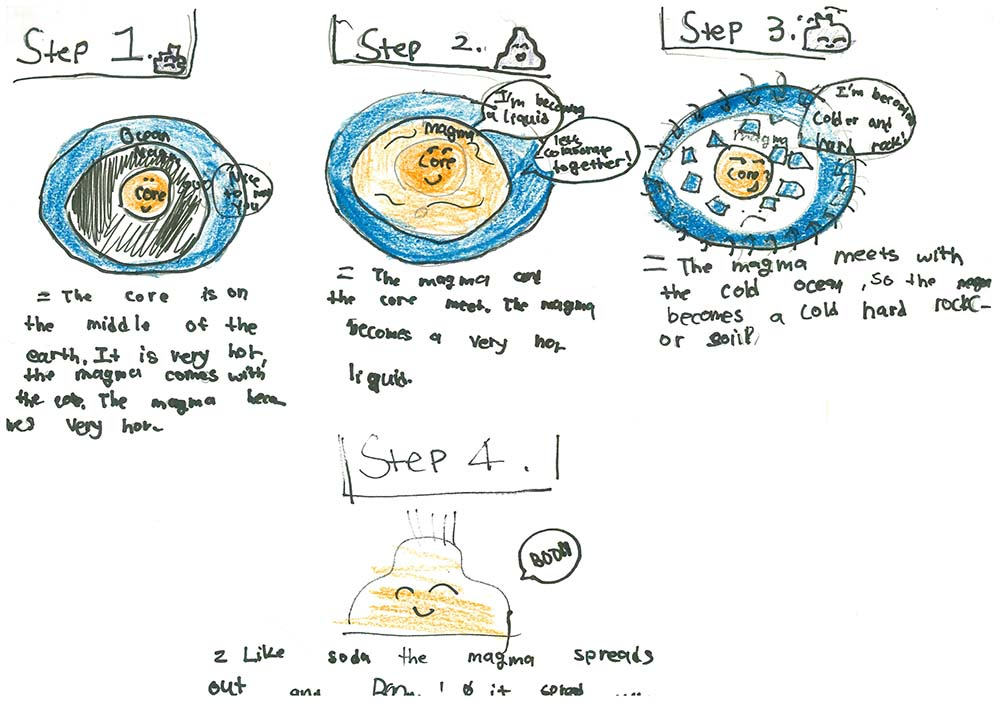 Step 1.
Ocean
Core
Nice
to
you
= The core is on
the middle of the
earth. It is very hot,
the magma comes with
the The magma beco
mes very hot.
Step 2.
I'm becoming
a liquid
magma
Core
lets
colaborate
together!
= The magma and
the core meet. The magma
becomes a very hot
liquid.
Step 3.
I'm becoming
colder and
hard rock!
magma
Core
= The magma meets with
the cold ocean, so the magma
becomes a cold hard rock
or
Step 4.
BOOM
= Like soda the magma spreads
out and it spread